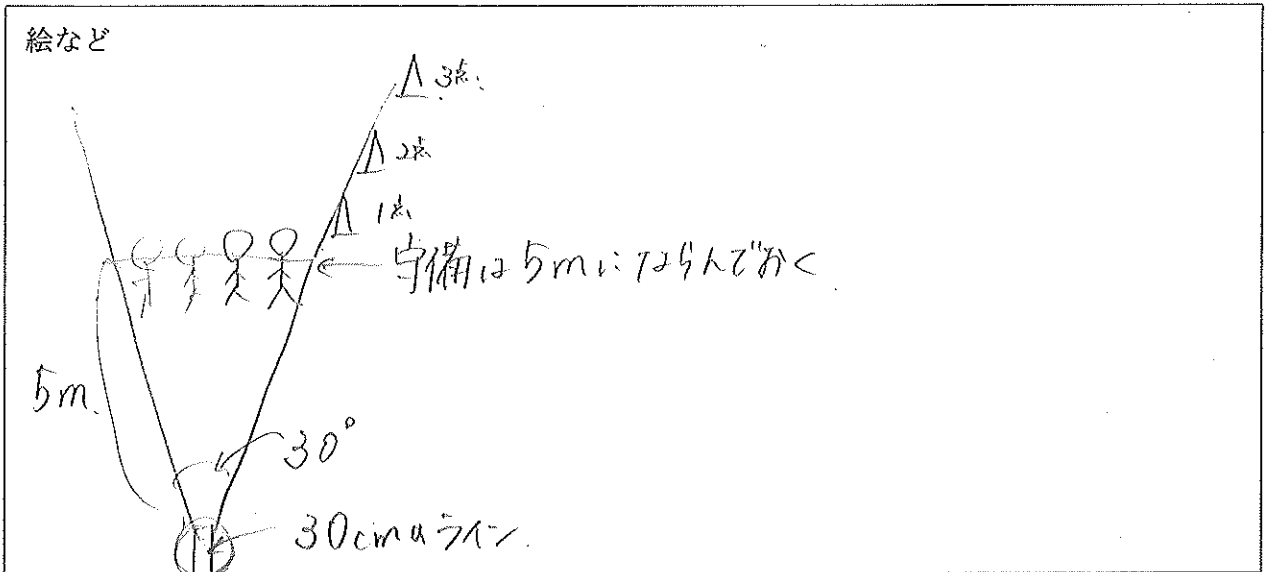 絵など
3点
2点
1点
守備は5mにならんでおく
5m
30°
30cmのライン